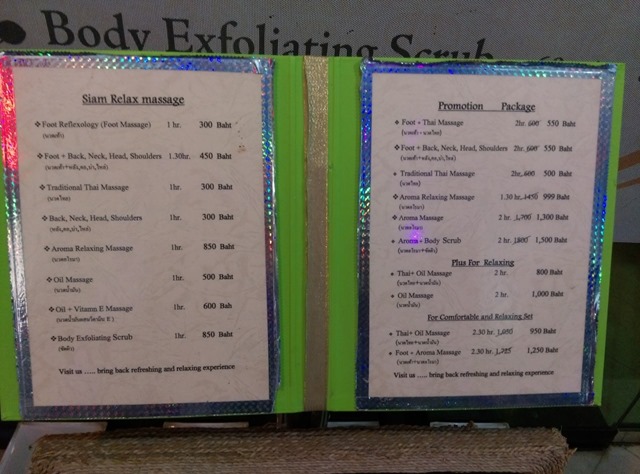 Body Exfoliating Scrub
Siam Relax massage
❖ Foot Reflexology (Foot Massage) 1 hr. 300 Baht
(นวดเท้า)
❖ Foot + Back, Neck, Head, Shoulders 1.30hr. 450 Baht
(นวดเท้า+หลัง,คอ,บ่า,ไหล่)
❖ Traditional Thai Massage 1hr. 300 Baht
(นวดไทย)
❖ Back, Neck, Head, Shoulders 1hr. 300 Baht
(หลัง,คอ,บ่า,ไหล่)
❖ Aroma Relaxing Massage 1hr. 850 Baht
(นวดอโรมา)
❖ Oil Massage 1hr. 500 Baht
(นวดน้ำมัน)
❖ Oil + Vitamn E Massage 1hr. 600 Bah
(นวดน้ำมันผสมวิตามิน E )
❖ Body Exfoliating Scrub 1hr. 850 Baht
(ขัดผิว)
Visit us ..... bring back refreshing and relaxing experience
Promotion Package
❖ Foot + Thai Massage 2hr. 600 550 Baht
(นวดเท้า + นวดไทย)
❖ Foot + Back, Neck, Head, Shoulders 2hr. 600 550 Baht
(นวดเท้า+หลัง,คอ,บ่า,ไหล่)
❖ Traditional Thai Massage 2hr. 600 500 Baht
(นวดไทย)
❖ Aroma Relaxing Massage 1.30 hr. 999 Baht
(นวดอโรมา)
❖ Aroma Massage 2 hr. 1,700 1,300 Baht
(นวดอโรมา)
❖ Aroma + Body Scrub 2 hr. 1,800 1,500 Baht
(นวดอโรมา+ขัดผิว)
Plus For Relaxing
❖ Thai+ Oil Massage 2 hr. 800 Baht
(นวดไทย+นวดน้ำมัน)
❖ Oil Massage 2 hr. 1,000 Baht
(นวดน้ำมัน)
For Comfortable and Relaxing Set
❖ Thai+ Oil Massage 2.30 hr. 1,050 950 Baht
(นวดไทย+นวดน้ำมัน)
❖ Foot + Aroma Massage 2.30 hr. 1,250 Baht
(นวดเท้า+นวดอโรมา)
Visit us ..... bring back refreshing and relaxing experience